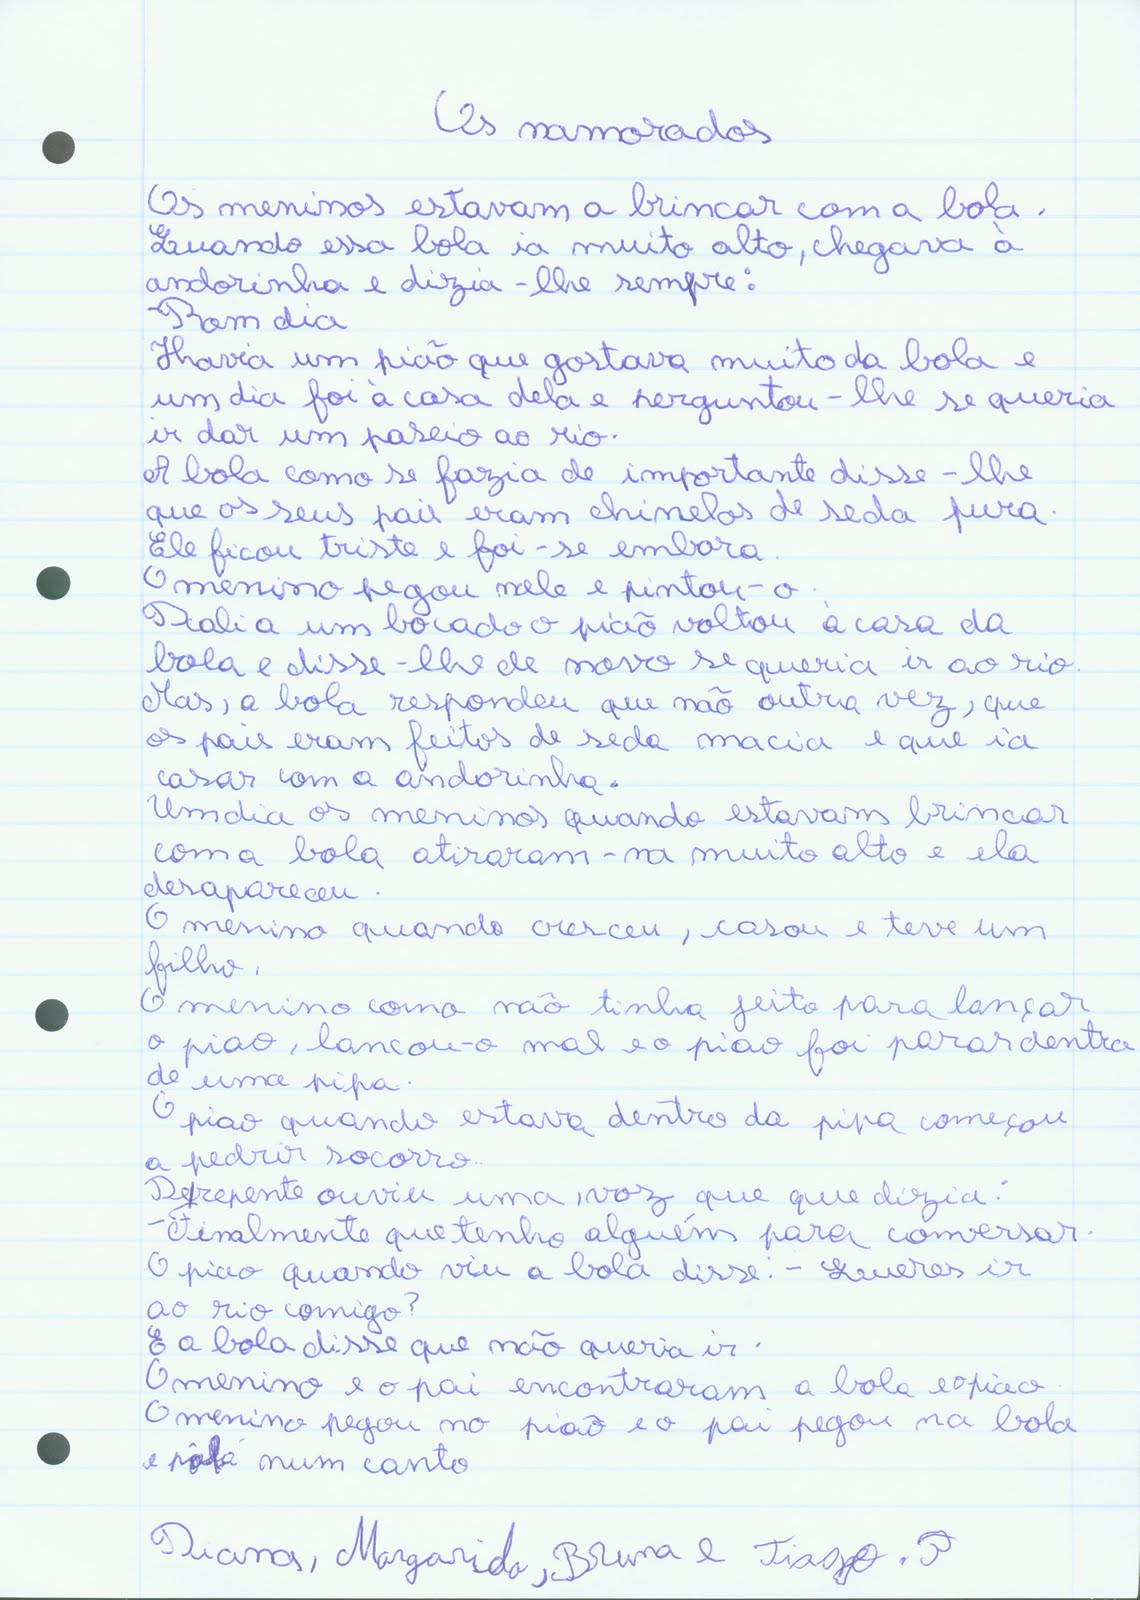 Os namorados
Os meninos estavam a brincar com a bola.
Quando essa bola ia muito alto, chegava à
andorinha e dizia-lhe sempre:
-Bom dia
Havia um pião que gostava muito da bola e
um dia foi à casa dela e perguntou-lhe se queria
ir dar um paseio ao rio.
A bola como se fazia de importante disse-lhe
que os seus pais eram chinelos de seda pura.
Ele ficou triste e foi-se embora.
O menino pegou nele e pintou-o.
Dali a um bocado o pião voltou à casa da
bola e disse-lhe de novo se queria ir ao rio.
Mas, a bola respondeu que não outra vez, que
os pais eram feitos de seda macia e que ia
casar com a andorinha.
Um dia os meninos quando estavam brincar
com a bola atiraram-na muito alto e ela
desapareceu.
O menino quando cresceu, casou e teve um
filho.
O menino como não tinha jeito para lançar
o piao, lancou-o mal e o piao foi parar dentro
de uma pipa.
O piao quando estava dentro da pipa começou
a pedrir socorro.
De repente ouviu uma, voz que que dizia:
-Finalmente que tenho alguém para conversar.
O piao quando viu a bola disse: - Queres ir
ao rio comigo?
E a bola disse que não queria ir.
O menino e o pai encontraram a bola e o piao.
O menino pegou no pião e o pai pegou na bola
e num canto
Diana, Margarida, Bruna e Tiago. P